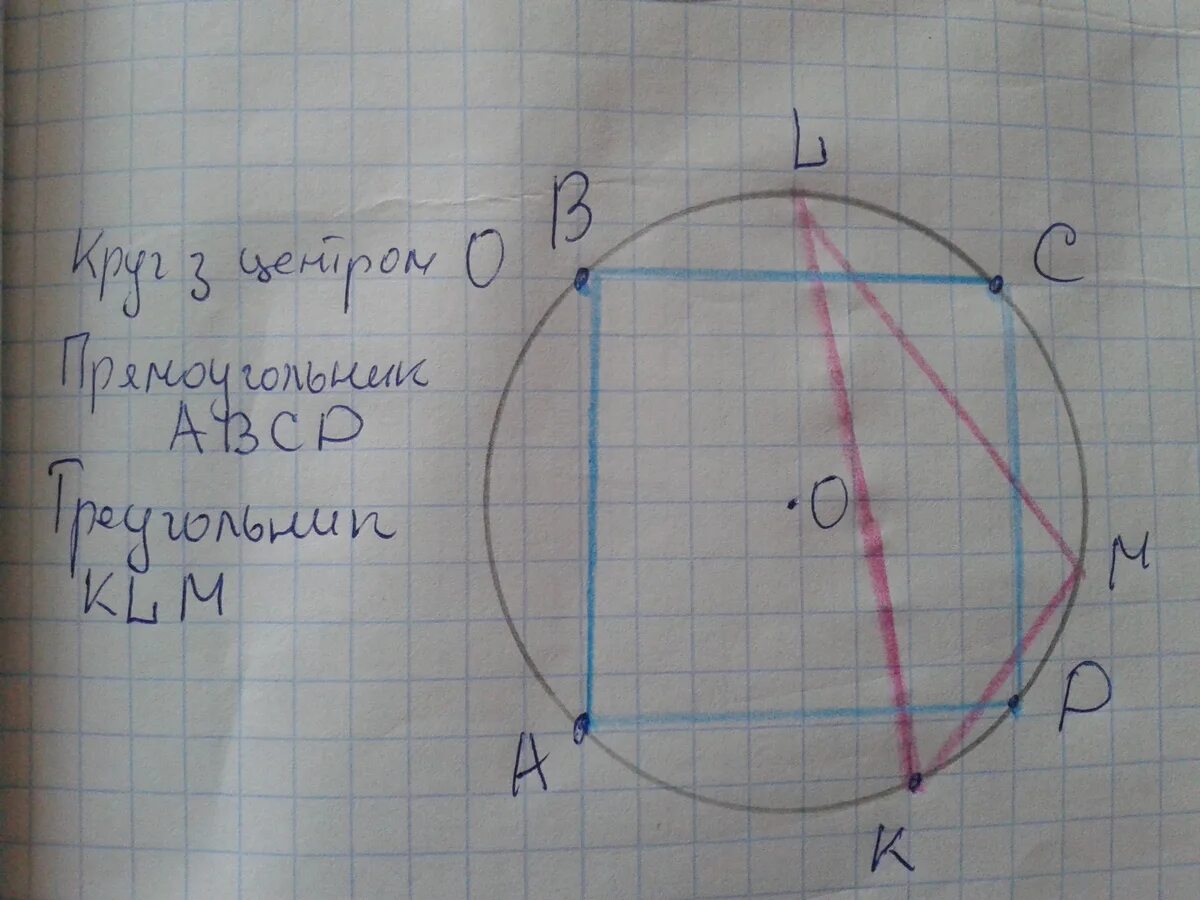 Круг з центром O
Прямоугольник
ABCD
Треугольник
KLM
L
B
C
O
M
D
A
K